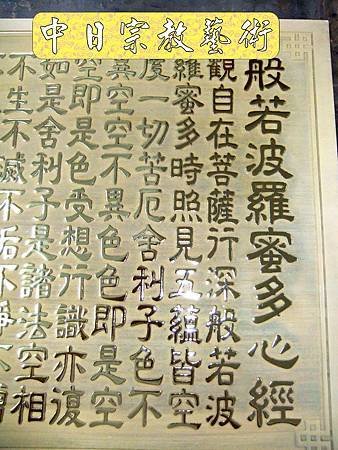 中日宗教藝術
般若波羅蜜多心經
觀自在菩薩行深般若波
羅蜜多時照見五蘊皆空
度一切苦厄舍利子色不
異空空不異色色即是空
空即是色受想行識亦復
如是舍利子是諸法空相
不生不滅不垢不淨不增